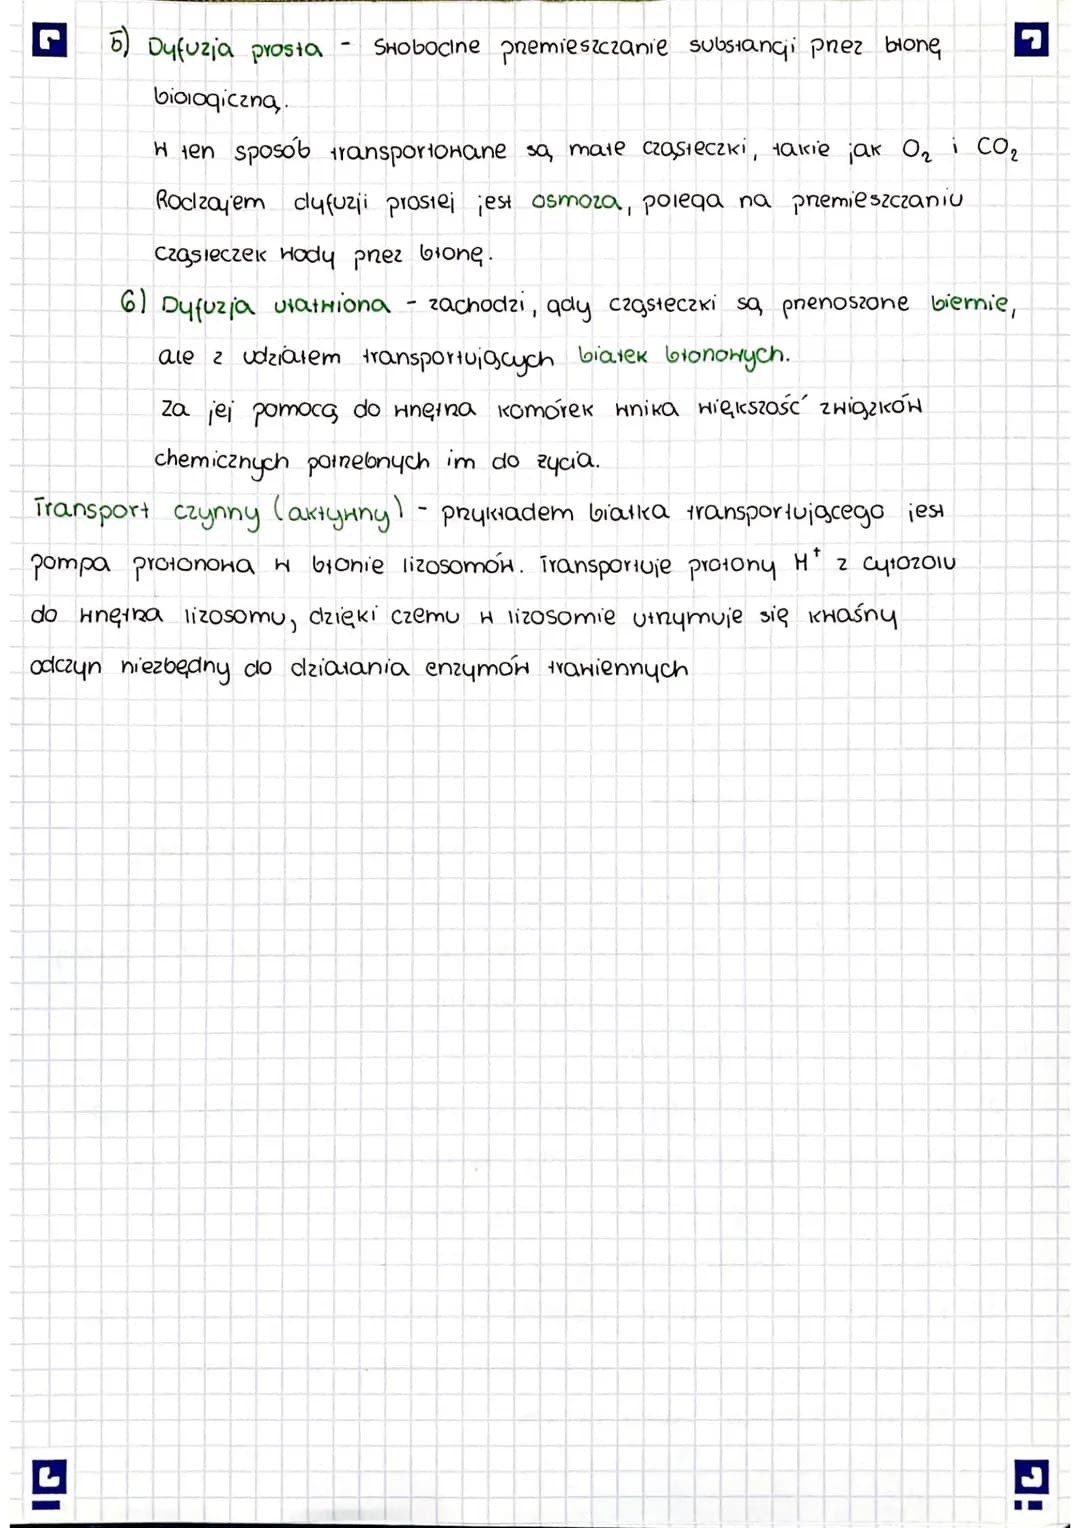 5) Dyfuzja prosta - swobodne przemieszczanie substancji przez błonę
biologiczną.
W ten sposób transportowane są małe cząsteczki, takie jak O₂ i CO₂
Rodzajem dyfuzji prostej jest osmoza, polega na przemieszczaniu
cząsteczek wody przez błonę.
6) Dyfuzja ułatwiona - zachodzi, gdy cząsteczki są przenoszone biernie,
ale z udziałem transportujących białek błonowych.
Za jej pomocą do wnętrza komórek wnika większość związków
chemicznych potrzebnych im do życia.
Transport czynny (aktywny) - przykładem białka transportującego jest
pompa protonowa w błonie lizosomów. Transportuje protony H⁺ z cytozolu
do wnętrza lizosomu, dzięki czemu w lizosomie utrzymuje się kwaśny
odczyn niezbędny do działania enzymów trawiennych